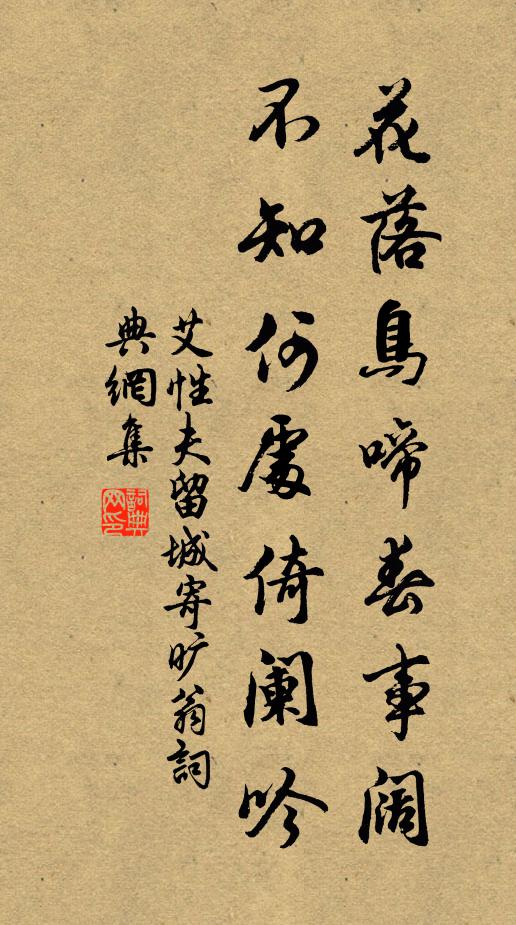 花落鳥啼春事阔
不知何處倚阑吟
艾性夫留城寄旷翁詞
典網集
詞典网印